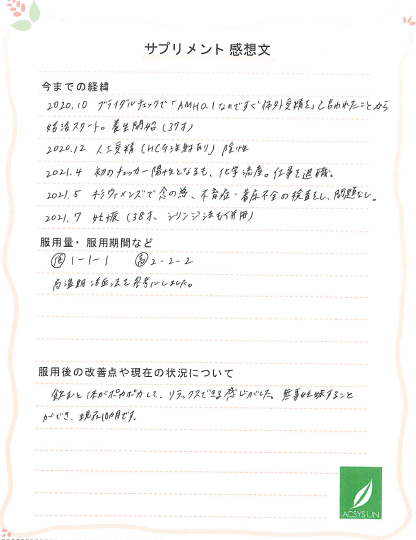 サプリメント 感想文
今までの経緯
2020.10 ブライダルチェックで「AMH0.1なのですぐ体外受精を」と言われたことから
妊活スタート。養生開始(37才)
2020.12 人工受精(HCG注射有り)陰性
2021.4 初のチェッカー陽性となるも、化学流産。仕事を退職。
2021.5 ウィメンズで念の為、不育症・着床不全の検査をし、問題なし。
2021.7 妊娠(38才、シリンジ法も併用)
服用量・服用期間など
低 1-1-1 高 2-2-2
高温期 活血法を参考にしました。
服用後の改善点や現在の状況について
飲むと体がポカポカして、リラックスできる感じがした。無事妊娠すること
ができ、現在10ヶ月です。
ACSYS UN